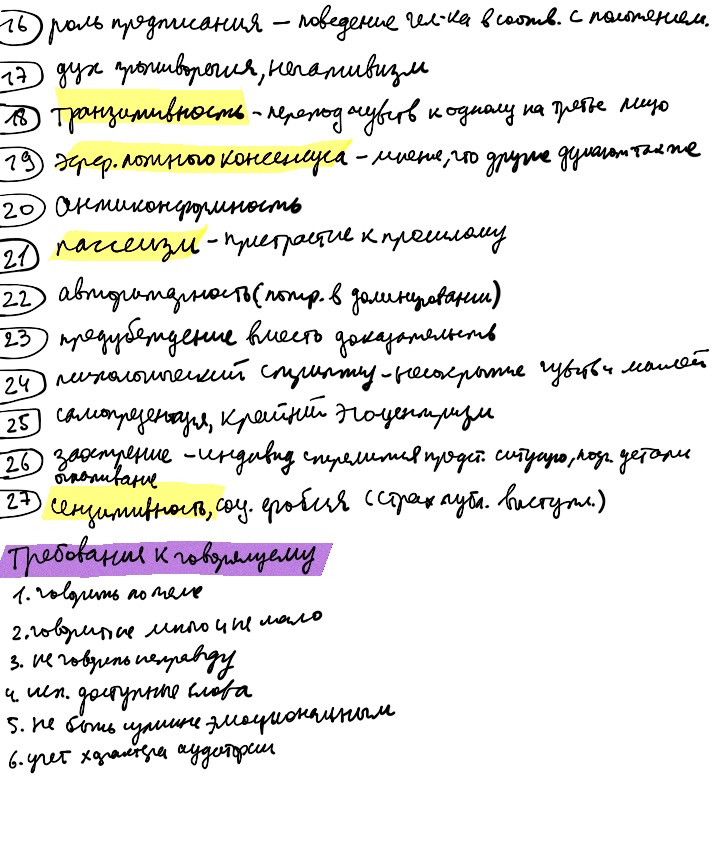 16 роль предписания – поведение чел-ка в соотв. с положением.
17 дух противоречия, негативизм
18 транзитивность – переход чувств к одному на третье лицо
19 эфф. ложного консенсуса – мнение, что другие думают так же
20 антиконформность
21 пассеизм – пристрастие к прошлому
22 авторитарность (потр. в доминировании)
23 предубеждение вместо доказательств
24 психологический стриптиз – несокрытие чувств и мыслей
25 самопрезентация, крайний эгоцентризм
26 заострение – индивид стремится предст. ситуацию, подр. детали
27 сензитивность, соц. фобия (страх публ. выступл.)
Требования к говорящему
1. говорить по теме
2. говорить не много и не мало
3. не говорить неправду
4. исп. доступные слова
5. не быть излишне эмоциональным
6. учет характера аудитории